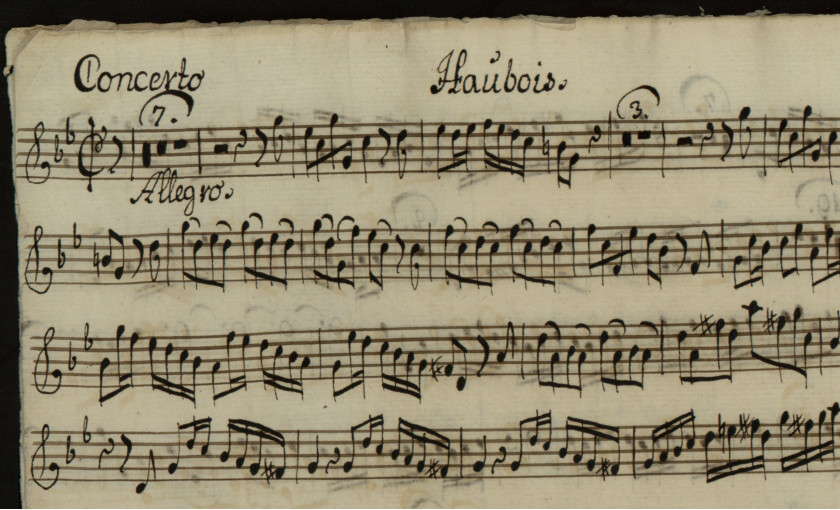 Concerto Haubois.
7. 3.
Allegro.